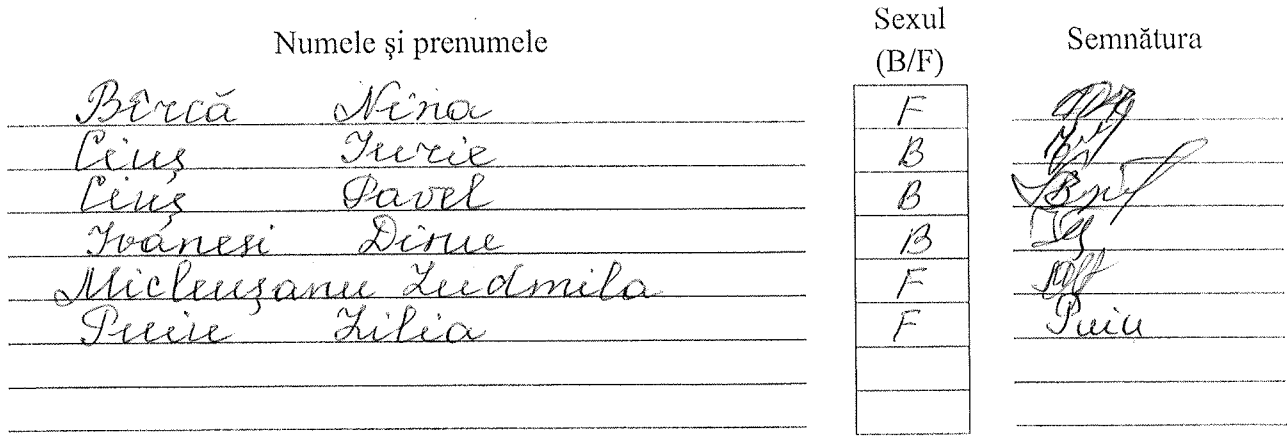 Numele și prenumele Sexul (B/F) Semnătura
Bîrcă Nina F
Ceuș Iurie B
Ceuș Pavel B
Ivănesi Dinu B
Micleușanu Ludmila F
Puiu Lilia F Puiu